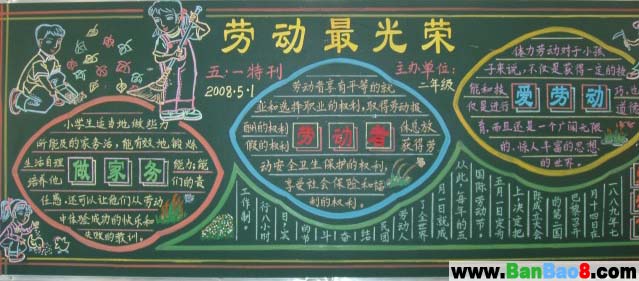 劳动最光荣
五·一特刊
2008·5·1
主办单位:
二年级
小学生适当地做些力
所能及的家务活,能有效地锻炼
生活自理 做家务 能力;能
培养他 们的责
任感;还可以让他们从劳动
中体验成功的快乐和
失败的教训。
劳动者享有平等的就
业和选择职业的权利,取得劳动报
酬的权利 劳动者 休息放
假的权利 获得劳
动安全卫生保护的权利,
享受社会保险和福
利的权利。
体力劳动对于小孩
子来说,不仅是获得一定的技
能和技 爱劳动 巧,也
仅是进行 道
育,而且还是一个广阔无限
的、惊人丰富的思想
的世界。
一八八九年七
月十四日在
巴黎召开
的第二国
际成立大会
上决定把
五月一日定为
国际劳动节,
从此,每年的五
月一日就成
了全世界
劳动人
民团
结
奋
斗
的节
日,实
行八小时
工作制。
www.BanBao8.com